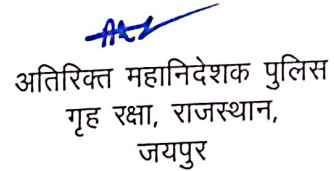 अतिरिक्त महानिदेशक पुलिस
गृह रक्षा, राजस्थान,
जयपुर